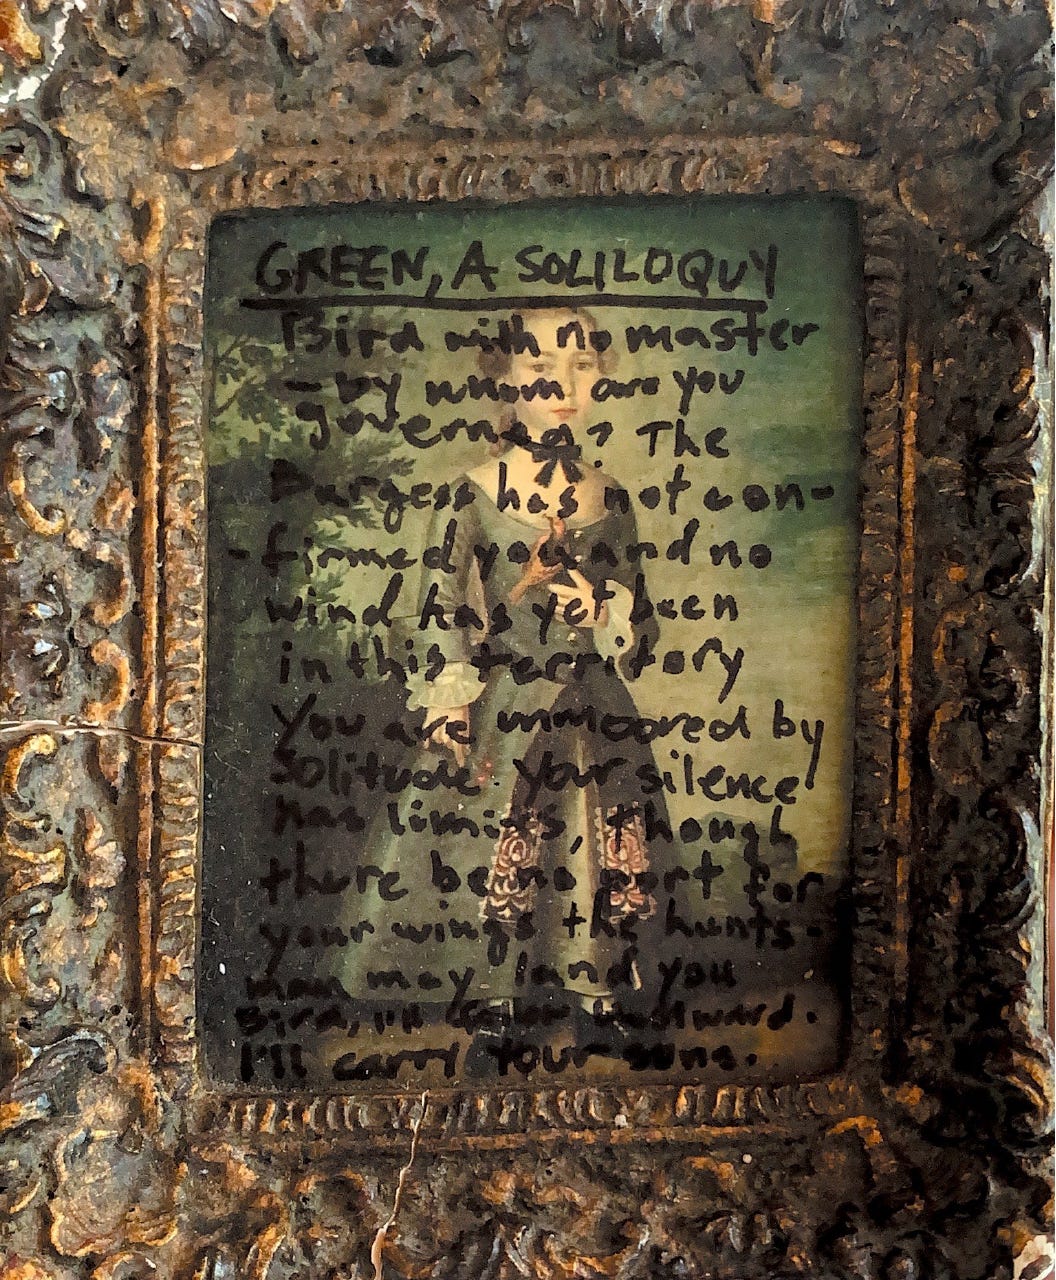 GREEN, A SOLILOQUY
Bird with no master
- by whom are you
governed? The
Burgess has not con-
-firmed you and no
wind has yet been
in this territory
You are unmoored by
Solitude. Your silence
has limits, though
there be no port for
your wings the hunts-
man may land you
Bird, I'll
I'll carry your